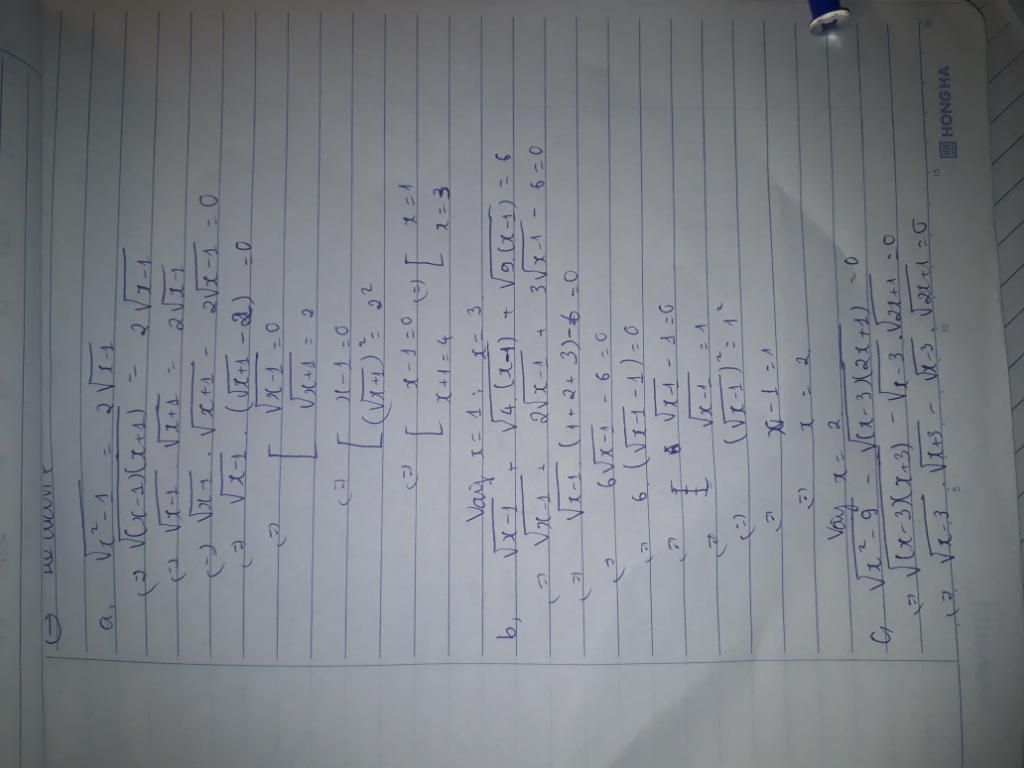 a, √x²-1 = 2√x-1
(=) √(x-1)(x+1) = 2√x-1
(=) √x-1 . √x+1 = 2√x-1
(=) √x-1 . √x+1 - 2√x-1 = 0
(=) √x-1 . (√x+1 - 2) = 0
(=) [ √x-1 = 0
√x+1 = 2
(=) [ x-1=0
(√x+1)² = 2²
(=) [ x-1=0 (=) [ x=1
x+1=4 x=3
Vậy x=1; x=3
b, √x-1 + √4(x-1) + √9(x-1) = 6
(=) √x-1 + 2√x-1 + 3√x-1 - 6=0
(=) √x-1 . (1+2+3)-6=0
(=) 6√x-1 - 6=0
(=) 6.(√x-1 -1)=0
(=) √x-1 -1=0
(=) √x-1 = 1
(=) (√x-1)² = 1²
(=) x-1=1
(=) x = 2
Vậy x=2
c, √x²-9 - √(x-3)(2x+1) =0
(=) √(x-3)(x+3) - √x-3 . √2x+1 =0
(=) √x-3 . √x+3 - √x-3 . √2x+1 =0
HONG HA
5 10 15 20